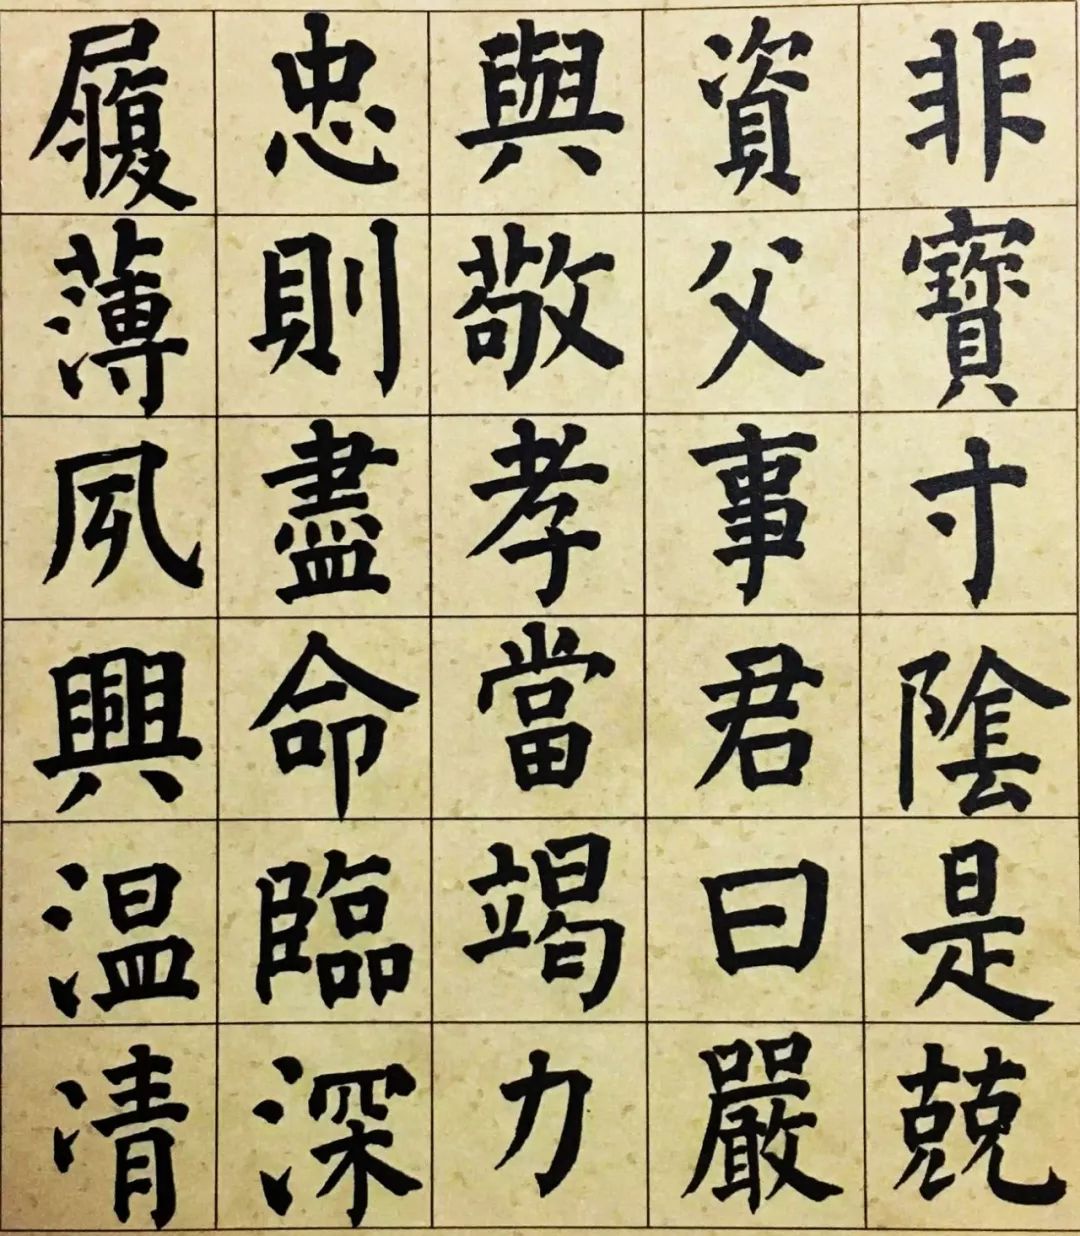 非寶寸陰是兢
資父事君曰嚴
與敬孝當竭力
忠則盡命臨深
履薄夙興温清